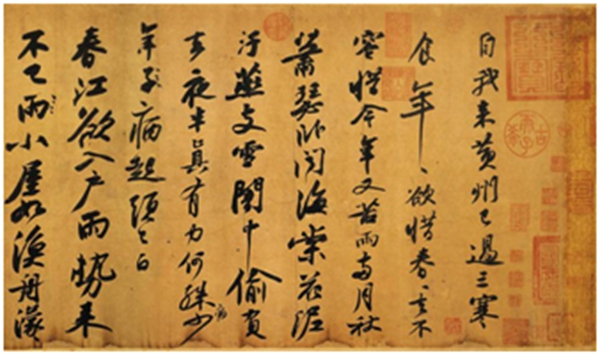 自我來黃州已過三寒
食年〻欲惜春〻去不
容惜今年又苦雨兩月秋
蕭瑟卧聞海棠花泥
汙燕支雪闇中偷負
去夜半真有力何殊病少
年子病起頭已白
春江欲入户雨勢來
不已雨小屋如漁舟濛